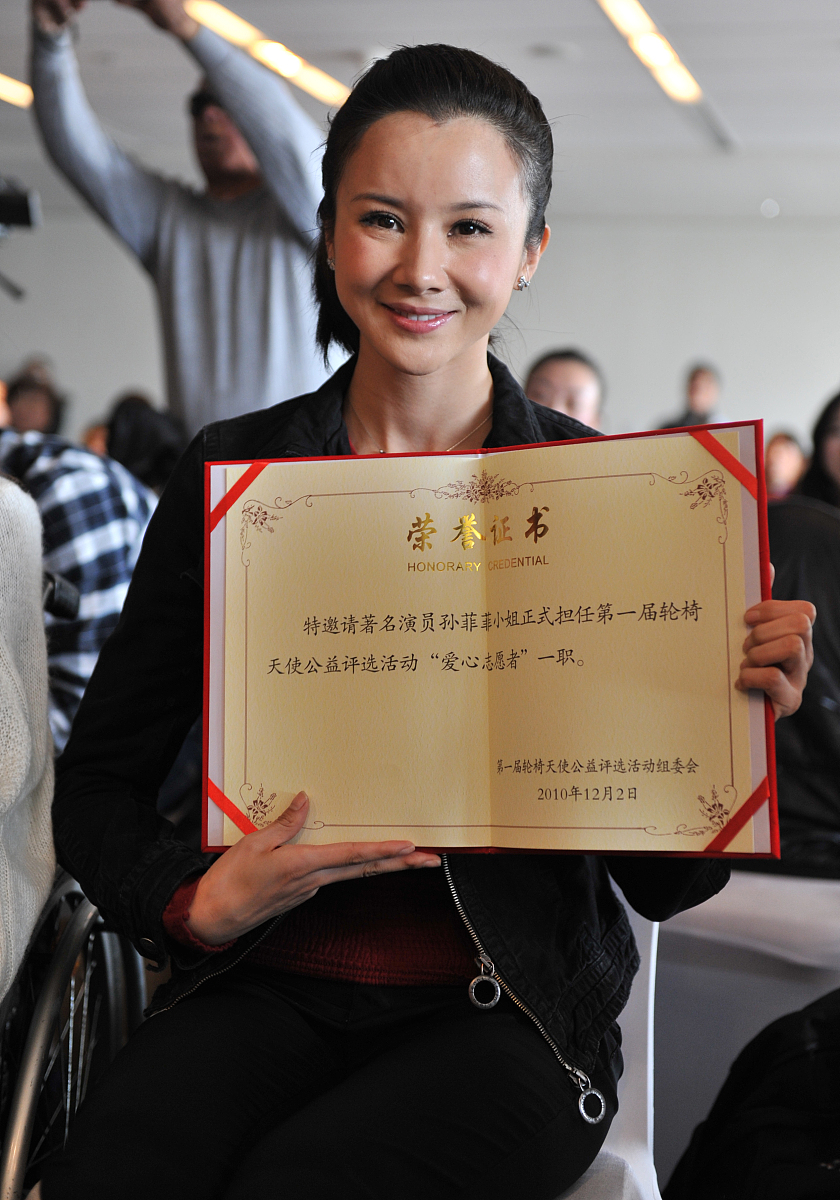 荣誉证书
HONORARY CREDENTIAL
特邀请著名演员孙菲菲小姐正式担任第一届轮椅
天使公益评选活动“爱心志愿者”一职。
第一届轮椅天使公益评选活动组委会
2010年12月2日